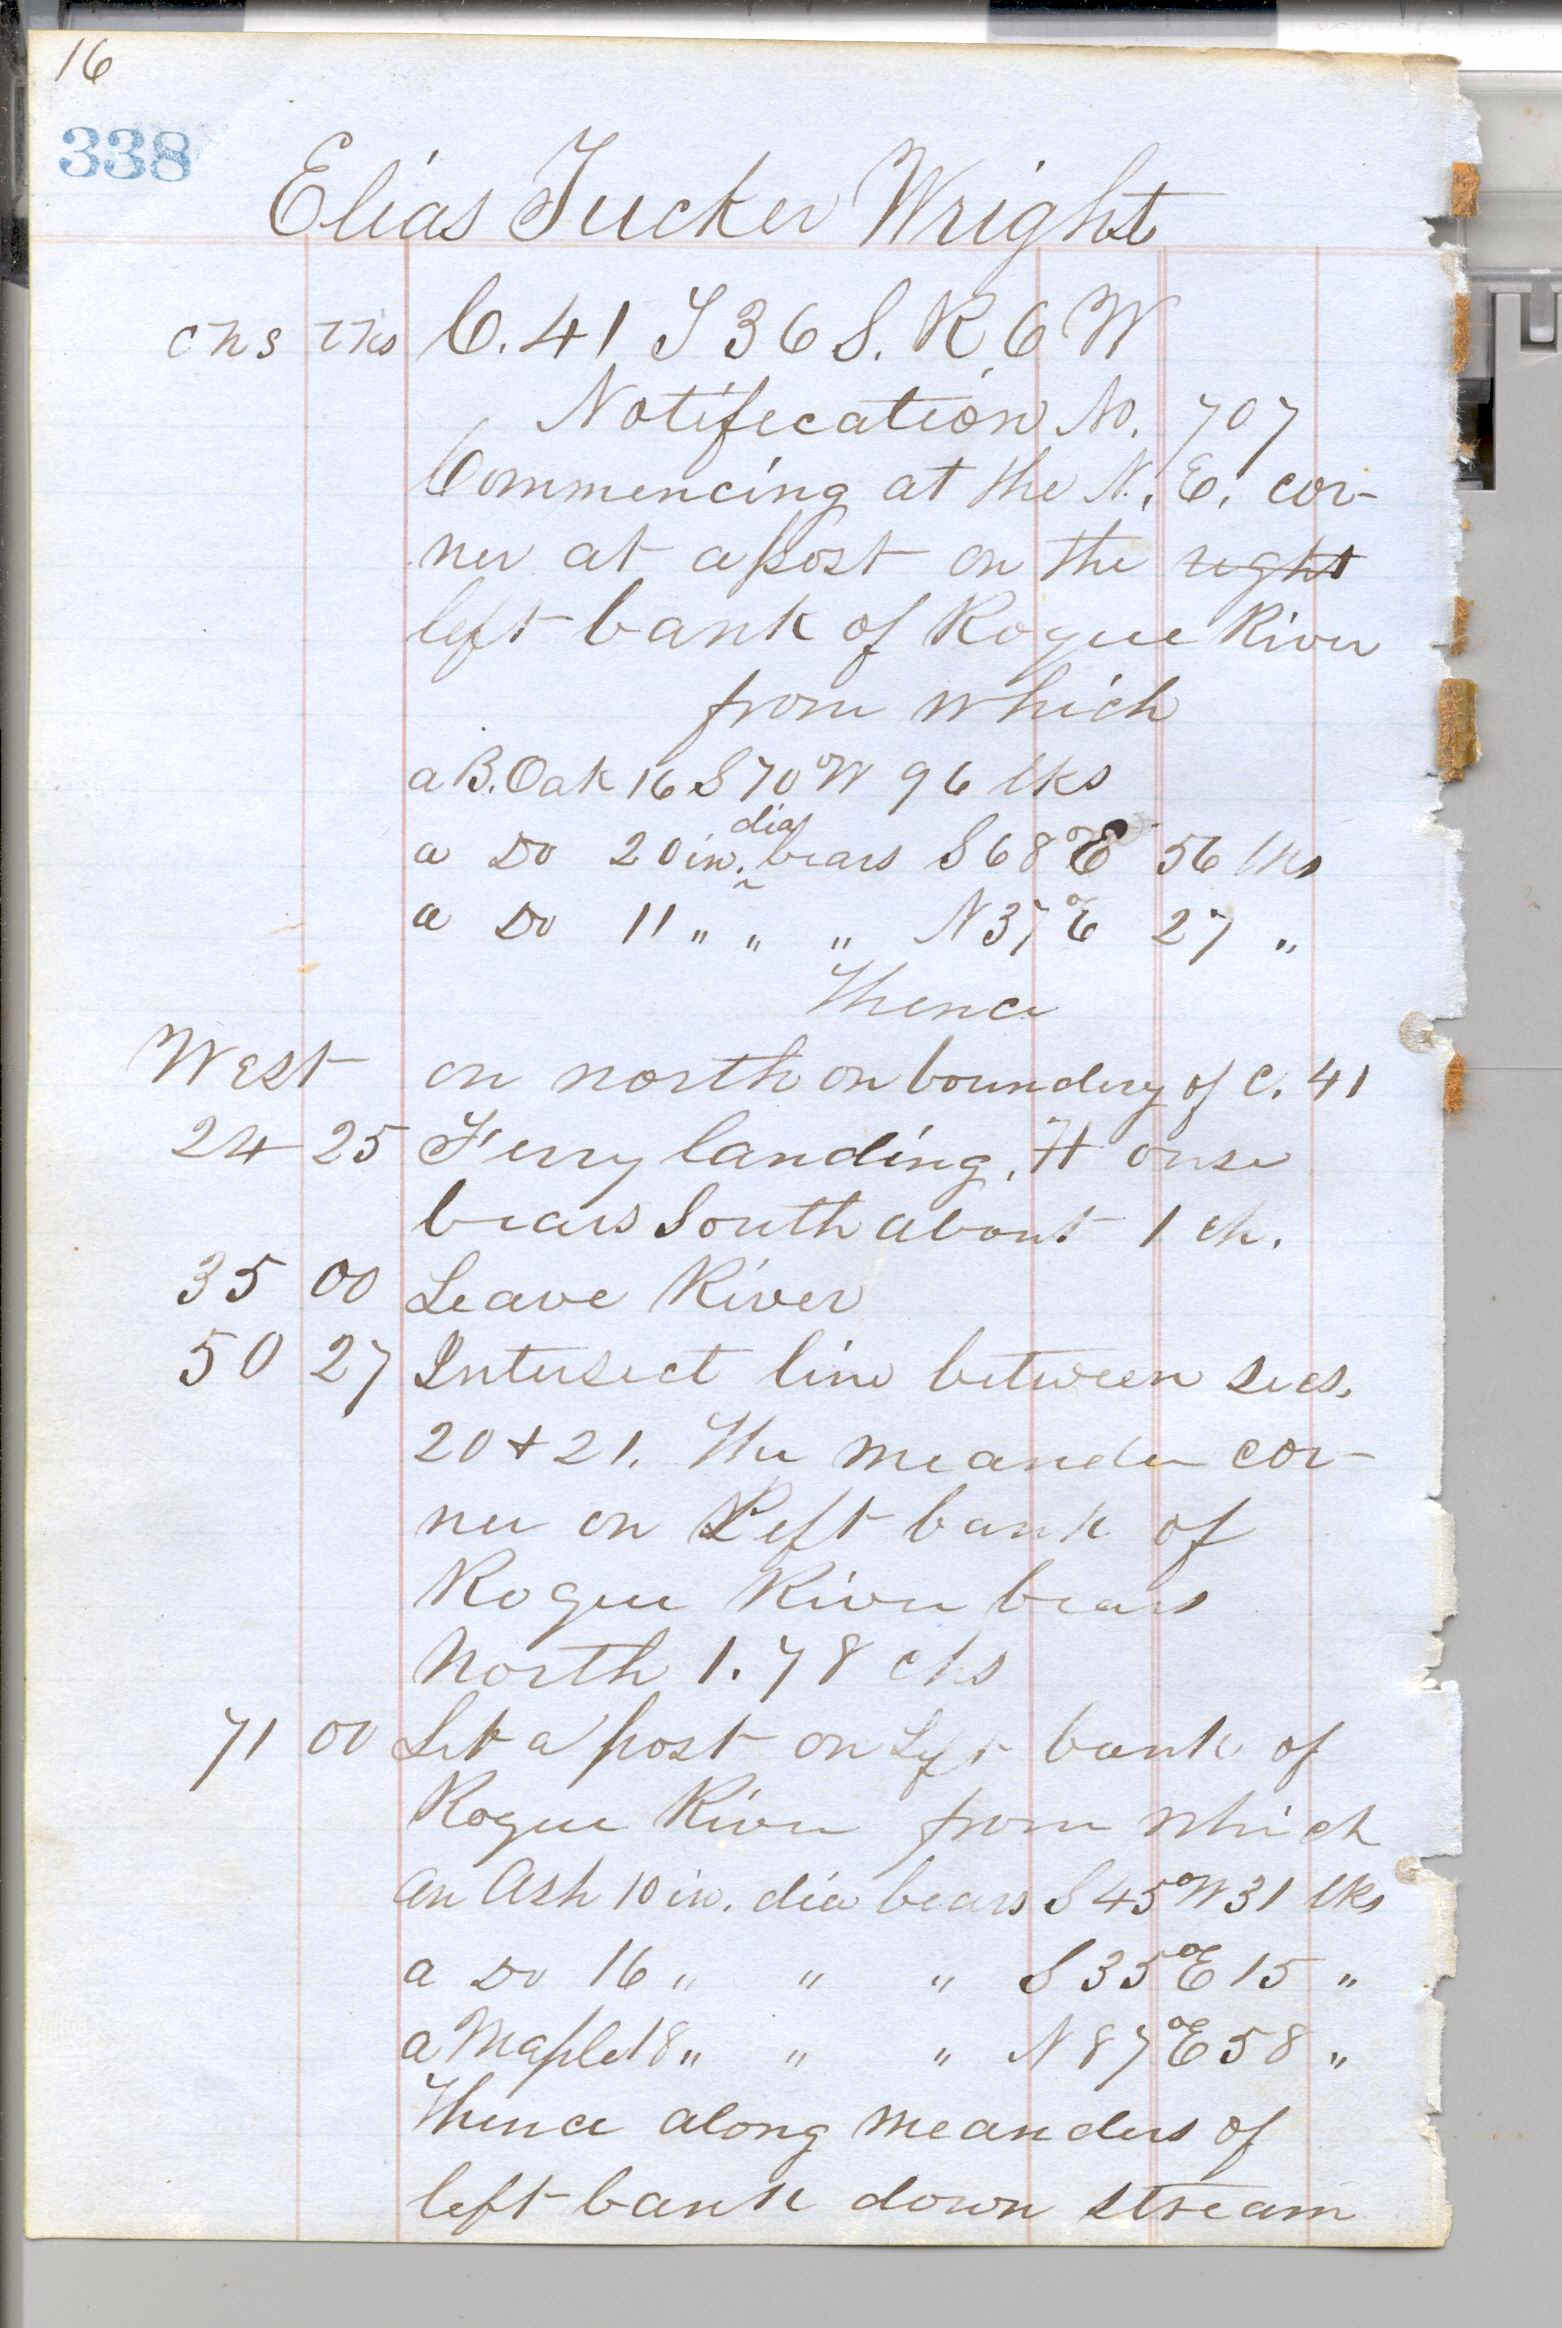 16
338
Elias Tucker Wright
chs lks C. 41 T 36 S. R. 6 W
Notifecation No. 707
Commencing at the N. E. cor-
ner at a post on the right
left bank of Rogue River
from which
a B. Oak 16 S 70° W 96 lks
dia
a Do 20 in. bears S 68° E 56 lks
a Do 11 " " " N 37° E 27 "
Thence
West on north on boundery of C. 41
24 25 Ferry landing. House
bears South about 1 ch.
35 00 Leave River
50 27 Intersect line between secs.
20 + 21. The meander cor-
ner on Left bank of
Rogue River bears
North 1.78 chs
71 00 Set a post on Left bank of
Rogue River from which
An Ash 10 in. dia bears S 45° W 31 lks
a Do 16 " " " S 35° E 15 "
a Maple 18 " " " N 87° E 58 "
Thence along meanders of
left bank down stream